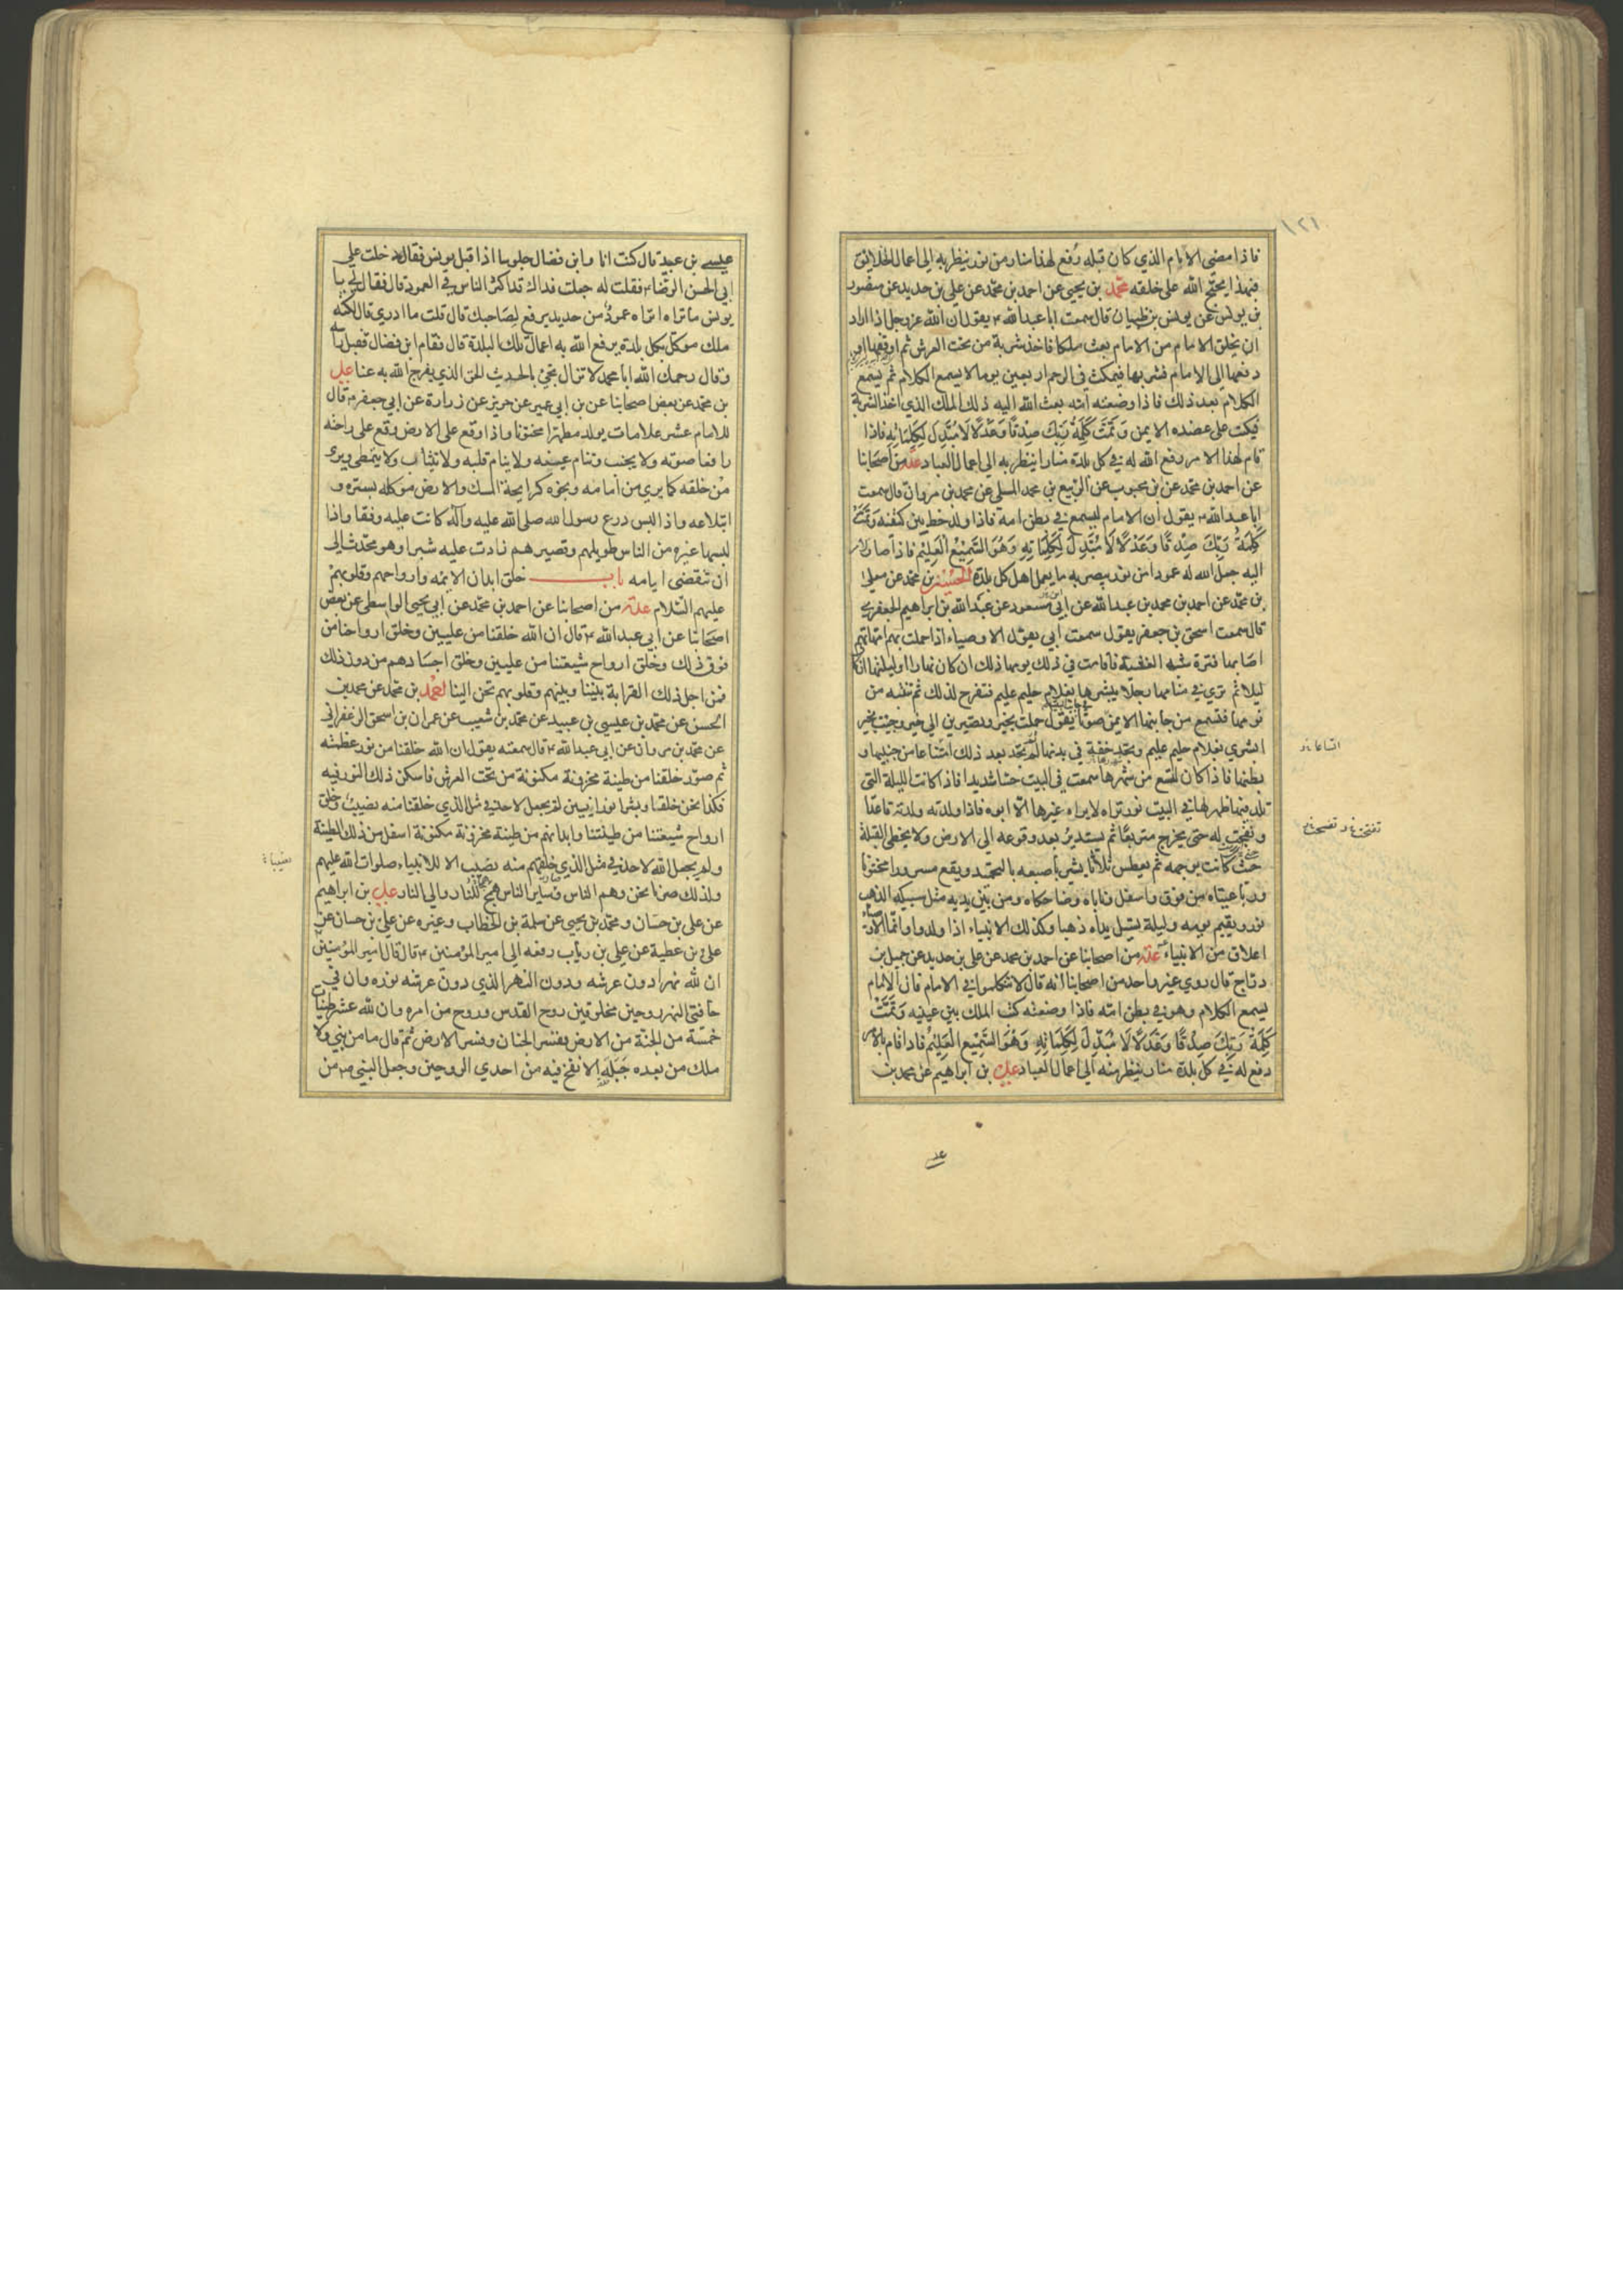 ١٢١
فاذا مضى الامام الذي كان قبله رُفع لهذا منار من نور ينظر به الى اعمال الخلائق
فبهذا يحتج الله على خلقه محمّد بن يحيى عن احمد بن محمّد عن علي بن حديد عن منصور
بن يونس عن يونس بن ظبيان قال سمعت ابا عبد الله ع يقول ان الله عز وجل اذا اراد
ان يخلق الامام من الامام بعث ملكا فاخذ شربة من تحت العرش ثم اوقعها او
دفعها الى الامام فشربها فيمكث في الرحم اربعين يوما لا يسمع الكلام ثم يسمع
الكلام بعد ذلك فاذا وضعته امّه بعث الله اليه ذلك الملك الذي اخذ الشربة
فيكتب على عضده الايمن وَتَمَّتْ كَلِمَةُ رَبِّكَ صِدْقًا وَعَدْلًا لَا مُبَدِّلَ لِكَلِمَاتِهِ فاذا
قام لهذا الامر رفع الله له في كل بلدة منارا ينظر به الى اعمال العباد عدّة من اصحابنا
عن احمد بن محمّد عن بن محبوب عن الربيع بن محمد المسلي عن محمد بن مروان قال سمعت
ابا عبد الله ع يقول ان الامام ليسمع في بطن امه فاذا ولد خط بين كتفيه وَتَمَّتْ
كَلِمَةُ رَبِّكَ صِدْقًا وَعَدْلًا لَا مُبَدِّلَ لِكَلِمَاتِهِ وَهُوَ السَّمِيْعُ الْعَلِيْمُ فاذا صار الامر
اليه جعل الله له عمودا من نور يبصر به ما يعمل اهل كل بلدة الحسين بن محمد عن معلى
بن محمّد عن احمد بن محمد بن عبد الله عن ابن مسعود عن عبد الله بن ابراهيم الجعفري
قال سمعت اسحق بن جعفر يقول سمعت ابي يقول الاوصياء اذا حملت بهم امهاتهم
اصابها فترة شبه الغشية فاقامت في ذلك يومها ذلك ان كان نهارا او ليلتها ان كان
ليلا ثم ترى في منامها رجلا يبشرها بغلام حليم عليم فتفرح لذلك ثم تنتبه من
نومها فتسمع من جانبها الايمن صوتا يقول حملت بخير وتصيرين الى خير وجئت بخير
ابشري بغلام حليم عليم وتجد خفة في بدنها لم تجد بعد ذلك امتناعا من جنبيها و
بطنها فاذا كان لتسع من شهرها سمعت في البيت حسّا شديدا فاذا كانت الليلة التي
تلد فيها ظهر لها في البيت نور تراه لا يراه غيرها الّا ابوه فاذا ولدته ولدته قاعدا
وتفتحت له حتى يخرج متربعا ثم يستدير بعد وقوعه الى الارض ولا يخطى القبلة
حيث كانت بوجهه ثم يعطس ثلاثا يشير باصبعه بالتحميد ويقع مسرورا مختونا
ورباعيتاه من فوق واسفل وناباه وضاحكاه ومن بين يديه مثل سبيكة الذهب
نور ويقيم يومه وليلته يسيل يداه ذهبا وكذلك الانبياء اذا ولدوا وانما الاوصياء
اعلاق من الانبياء عدّة من اصحابنا عن احمد بن محمد عن علي بن حديد عن جميل بن
دراج قال روي غير واحد من اصحابنا انه قال لا تتكلموا في الامام فان الامام
يسمع الكلام وهو في بطن امّه فاذا وضعته كتب الملك بين عينيه وَتَمَّتْ
كَلِمَةُ رَبِّكَ صِدْقًا وَعَدْلًا لَا مُبَدِّلَ لِكَلِمَاتِهِ وَهُوَ السَّمِيْعُ الْعَلِيْمُ فاذا قام بالامر
رفع له في كل بلدة منار ينظر منه الى اعمال العباد علي بن ابراهيم عن محمد بن
اتساعا
عيسى بن عبيد قال كنت انا وابن فضال جلوسا اذا قبل يونس فقال دخلت على
ابي الحسن الرضا ع فقلت له جعلت فداك قد اكثر الناس في العمود قال فقال لي يا
يونس ما تراه اتراه عمودًا من حديد يرفع لصاحبك قال قلت ما ادري قال لكنّه
ملك موكّل بكل بلدة يرفع الله به اعمال تلك البلدة قال فقام ابن فضال فقبل راسه
وقال رحمك الله ابا محمد لا تزال تجئ بالحديث الحق الذي يفرج الله به عنا علي
بن محمّد عن بعض اصحابنا عن بن ابي عمير عن حريز عن زرارة عن ابي جعفر ع قال
للامام عشر علامات يولد مطهرا مختونا واذا وقع على الارض وقع على راحته
رافعا صوته ولا يجنب وتنام عينه ولا ينام قلبه ولا يتثاب ولا يتمطى ويرى
من خلفه كما يرى من امامه ونجوه كرايحة المسك والارض موكله بستره و
ابتلاعه واذا لبس درع رسول الله صلى الله عليه وآله كانت عليه وفقا واذا
لبسها غيره من الناس طويلهم وقصيرهم زادت عليه شبرا وهو محدّث الى
ان تنقضي ايامه باب خلق ابدان الائمه وارواحهم وقلوبهم
عليهم السّلام عدّة من اصحابنا عن احمد بن محمّد عن ابي يحيى الواسطي عن بعض
اصحابنا عن ابي عبد الله ع قال ان الله خلقنا من عليين وخلق ارواحنا من
فوق ذلك وخلق ارواح شيعتنا من عليين وخلق اجسادهم من دون ذلك
فمن اجل ذلك القرابة بيننا وبينهم وقلوبهم تحن الينا احمد بن محمّد عن محمد بن
الحسن عن محمّد بن عيسى بن عبيد عن محمّد بن شعيب عن عمران بن اسحق الزعفراني
عن محمّد بن مروان عن ابي عبد الله ع قال سمعته يقول ان الله خلقنا من نور عظمته
ثم صوّر خلقنا من طينة مخزونة مكنونة من تحت العرش فاسكن ذلك النور فيه
فكنا نحن خلقا وبشرا نورانيين لم يجعل لاحد في مثل الذي خلقنا منه نصيبٌ وخلق
ارواح شيعتنا من طينتنا وابدانهم من طينة مخزونة مكنونة اسفل من ذلك الطينة
ولم يجعل الله لاحد في مثل الذي خلقهم منه نصيب الا للانبياء صلوات الله عليهم
ولذلك صرنا نحن وهم الناس وساير الناس همج للنار والى النار علي بن ابراهيم
عن علي بن حسان ومحمّد بن يحيى عن سلمة بن الخطاب وغيره عن علي بن حسان عن
علي بن عطية عن علي بن رياب رفعه الى امير المؤمنين ع قال قال امير المؤمنين
ان لله نهرا دون عرشه ودون النهر الذي دون عرشه نوره وان في
حافتي النهر روحين مخلوقين روح القدس وروح من امره وان لله عشر طينات
خمسة من الجنة من الارض ففسر الجنان وفسر الارض ثم قال ما من نبي ولا
ملك من بعده جَبَلَه الا نفخ فيه من احدى الروحين وجعل النبي ص من
نصيبا